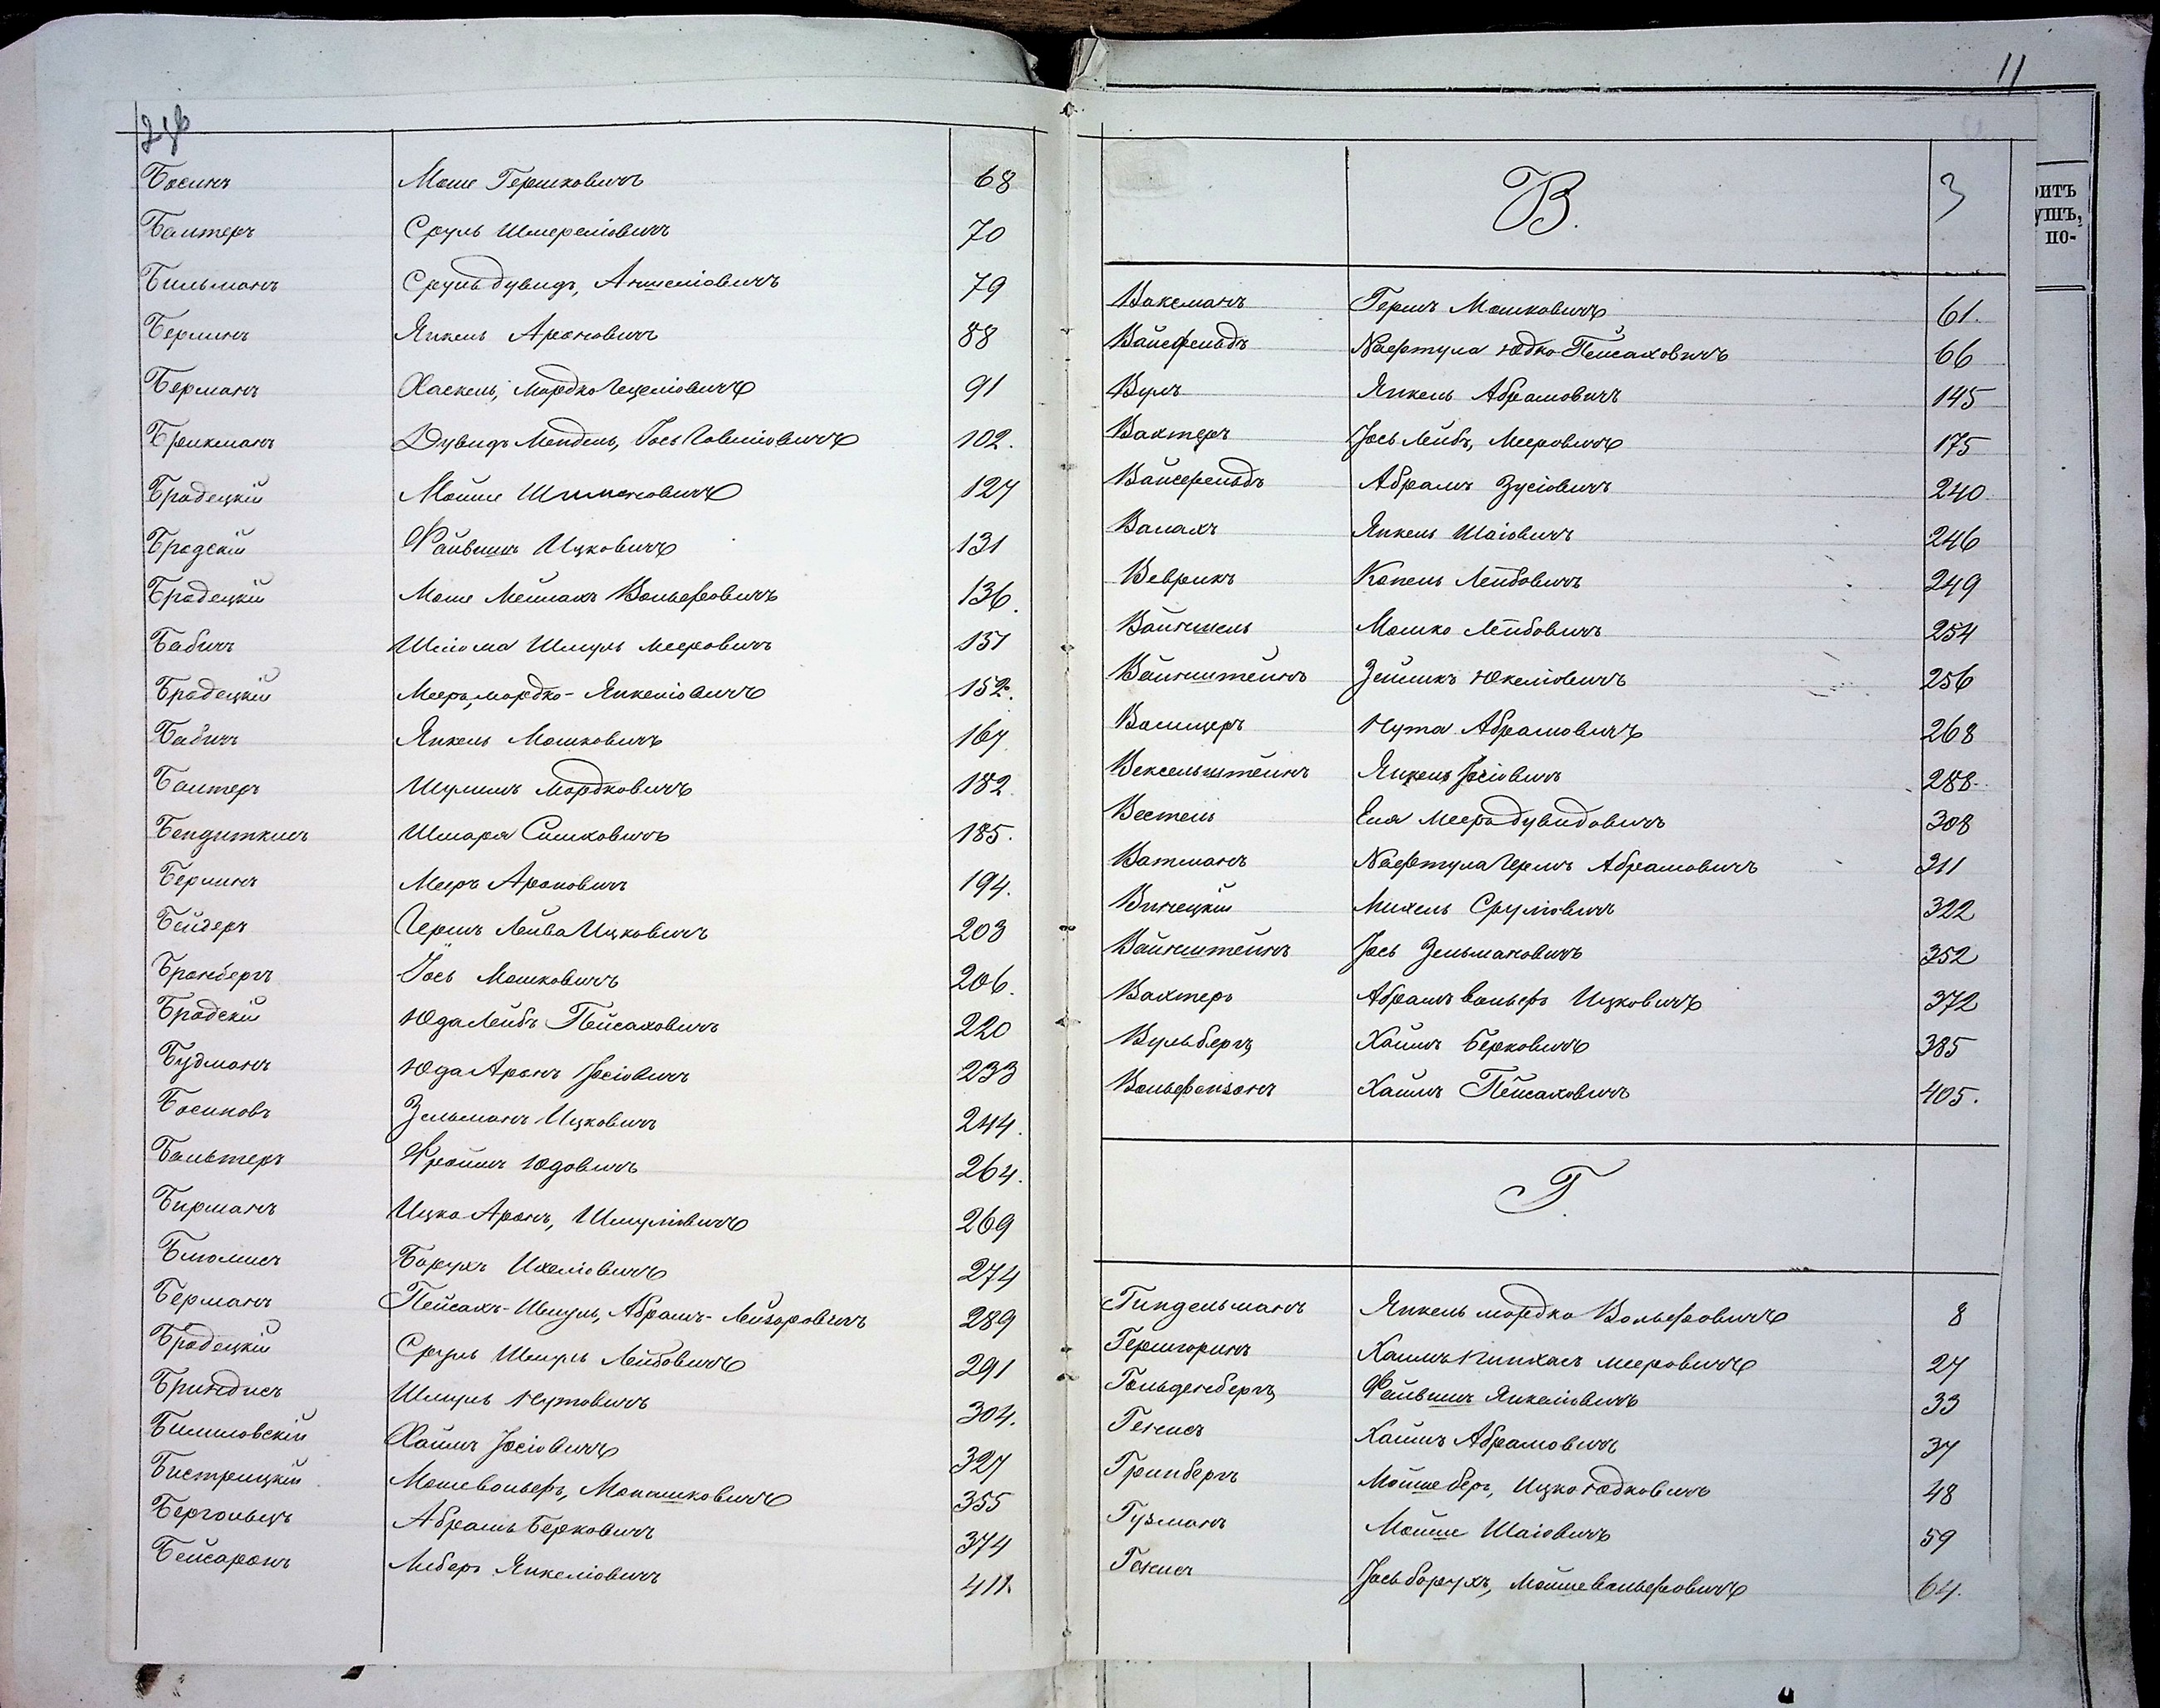 Босинъ Моше Гершковичъ 68
Балтеръ Сруль Шмерелiовичъ 70
Бильманъ Сруль дувидъ, Аншелiовичъ 79
Берлинъ Янкель Ароновичъ 88
Берманъ Хаскель, Мордко Гецелiовичъ 91
Брикманъ Дувидъ Мендель, Iось Iовелiовичъ 102.
Бродецкiй Мойше Шимоновичъ 127
Бродскiй Файвишъ Ицковичъ 131
Бродецкiй Моше Мейлахъ Вольфовичъ 136.
Бабичъ Шлiома Шмуль Мееровичъ 151
Бродецкiй Мееръ, мордко-Янкелiовичъ 152.
Бабичъ Янкель Мошковичъ 167
Балтеръ Шулимъ Мордковичъ 182.
Бендиткисъ Шмаря Симховичъ 185.
Берлинъ Мееръ Ароновичъ 194.
Бейдеръ Гершъ Лейба Ицковичъ 203
Бронбергъ Iось Мошковичъ 206.
Бродскiй Юда Лейбъ Пейсаховичъ 220
Будманъ Юда Аронъ Iосiовичъ 233
Босиновъ Зельманъ Ицковичъ 244.
Бальтеръ Фроимъ Юдовичъ 264.
Бирманъ Ицко Аронъ, Шмулiовичъ 269
Блюмисъ Борухъ Ихелiовичъ 274
Берманъ Пейсахъ-Шмуль, Абрамъ-Лейзоровичъ 289
Бродецкiй Сруль Шмуль Лейбовичъ 291
Бриндисъ Шмуль Нутовичъ 304.
Билиловскiй Хаимъ Iосiовичъ 327
Бистрицкiй Моше вольфъ, Монашковичъ 355
Бергольцъ Абрамъ Берковичъ 374
Бейсаронъ Либеръ Янкелiовичъ 411.
11
В. 3
Ваксманъ Гершъ Мошковичъ 61.
Вайсфельдъ Нафтула Юдко Пейсаховичъ 66
Вулъ Янкель Абрамовичъ 145
Вахтеръ Iось Лейбъ, Мееровичъ 175
Вайсфельдъ Абрамъ Зусiовичъ 240
Валахъ Янкель Шаiовичъ 246
Веврикъ Копель Лейбовичъ 249
Вайншель Мошко Лейбовичъ 254
Вайнштейнъ Зейликъ Юкелiовичъ 256
Валицеръ Нута Абрамовичъ 268
Вексельштейнъ Янкель Iосiовичъ 288.
Вестель Еля Мееръ дувидовичъ 308
Ватманъ Нафтула Гершъ Абрамовичъ 311
Винецкiй Михель Срулiовичъ 322
Вайнштейнъ Iось Зельмановичъ 352
Вахтеръ Абрамъ вольфъ Ицковичъ 372
Вульбергъ Хаимъ Берковичъ 385
Вольфензонъ Хаимъ Пейсаховичъ 405.
Г.
Гиндельманъ Янкель мордко Вольфовичъ 8
Гершгоринъ Хаимъ пинхасъ мееровичъ 27
Гольденбергъ Файвишъ Янкелiовичъ 33
Генисъ Хаимъ Абрамовичъ 37
Гринбергъ Мойше беръ, Ицко Юдковичъ 48
Гузманъ Мойше Шаiовичъ 59
Генисъ Iось борухъ, Мойше вольфовичъ 64.
оитъ
ушъ,
по-